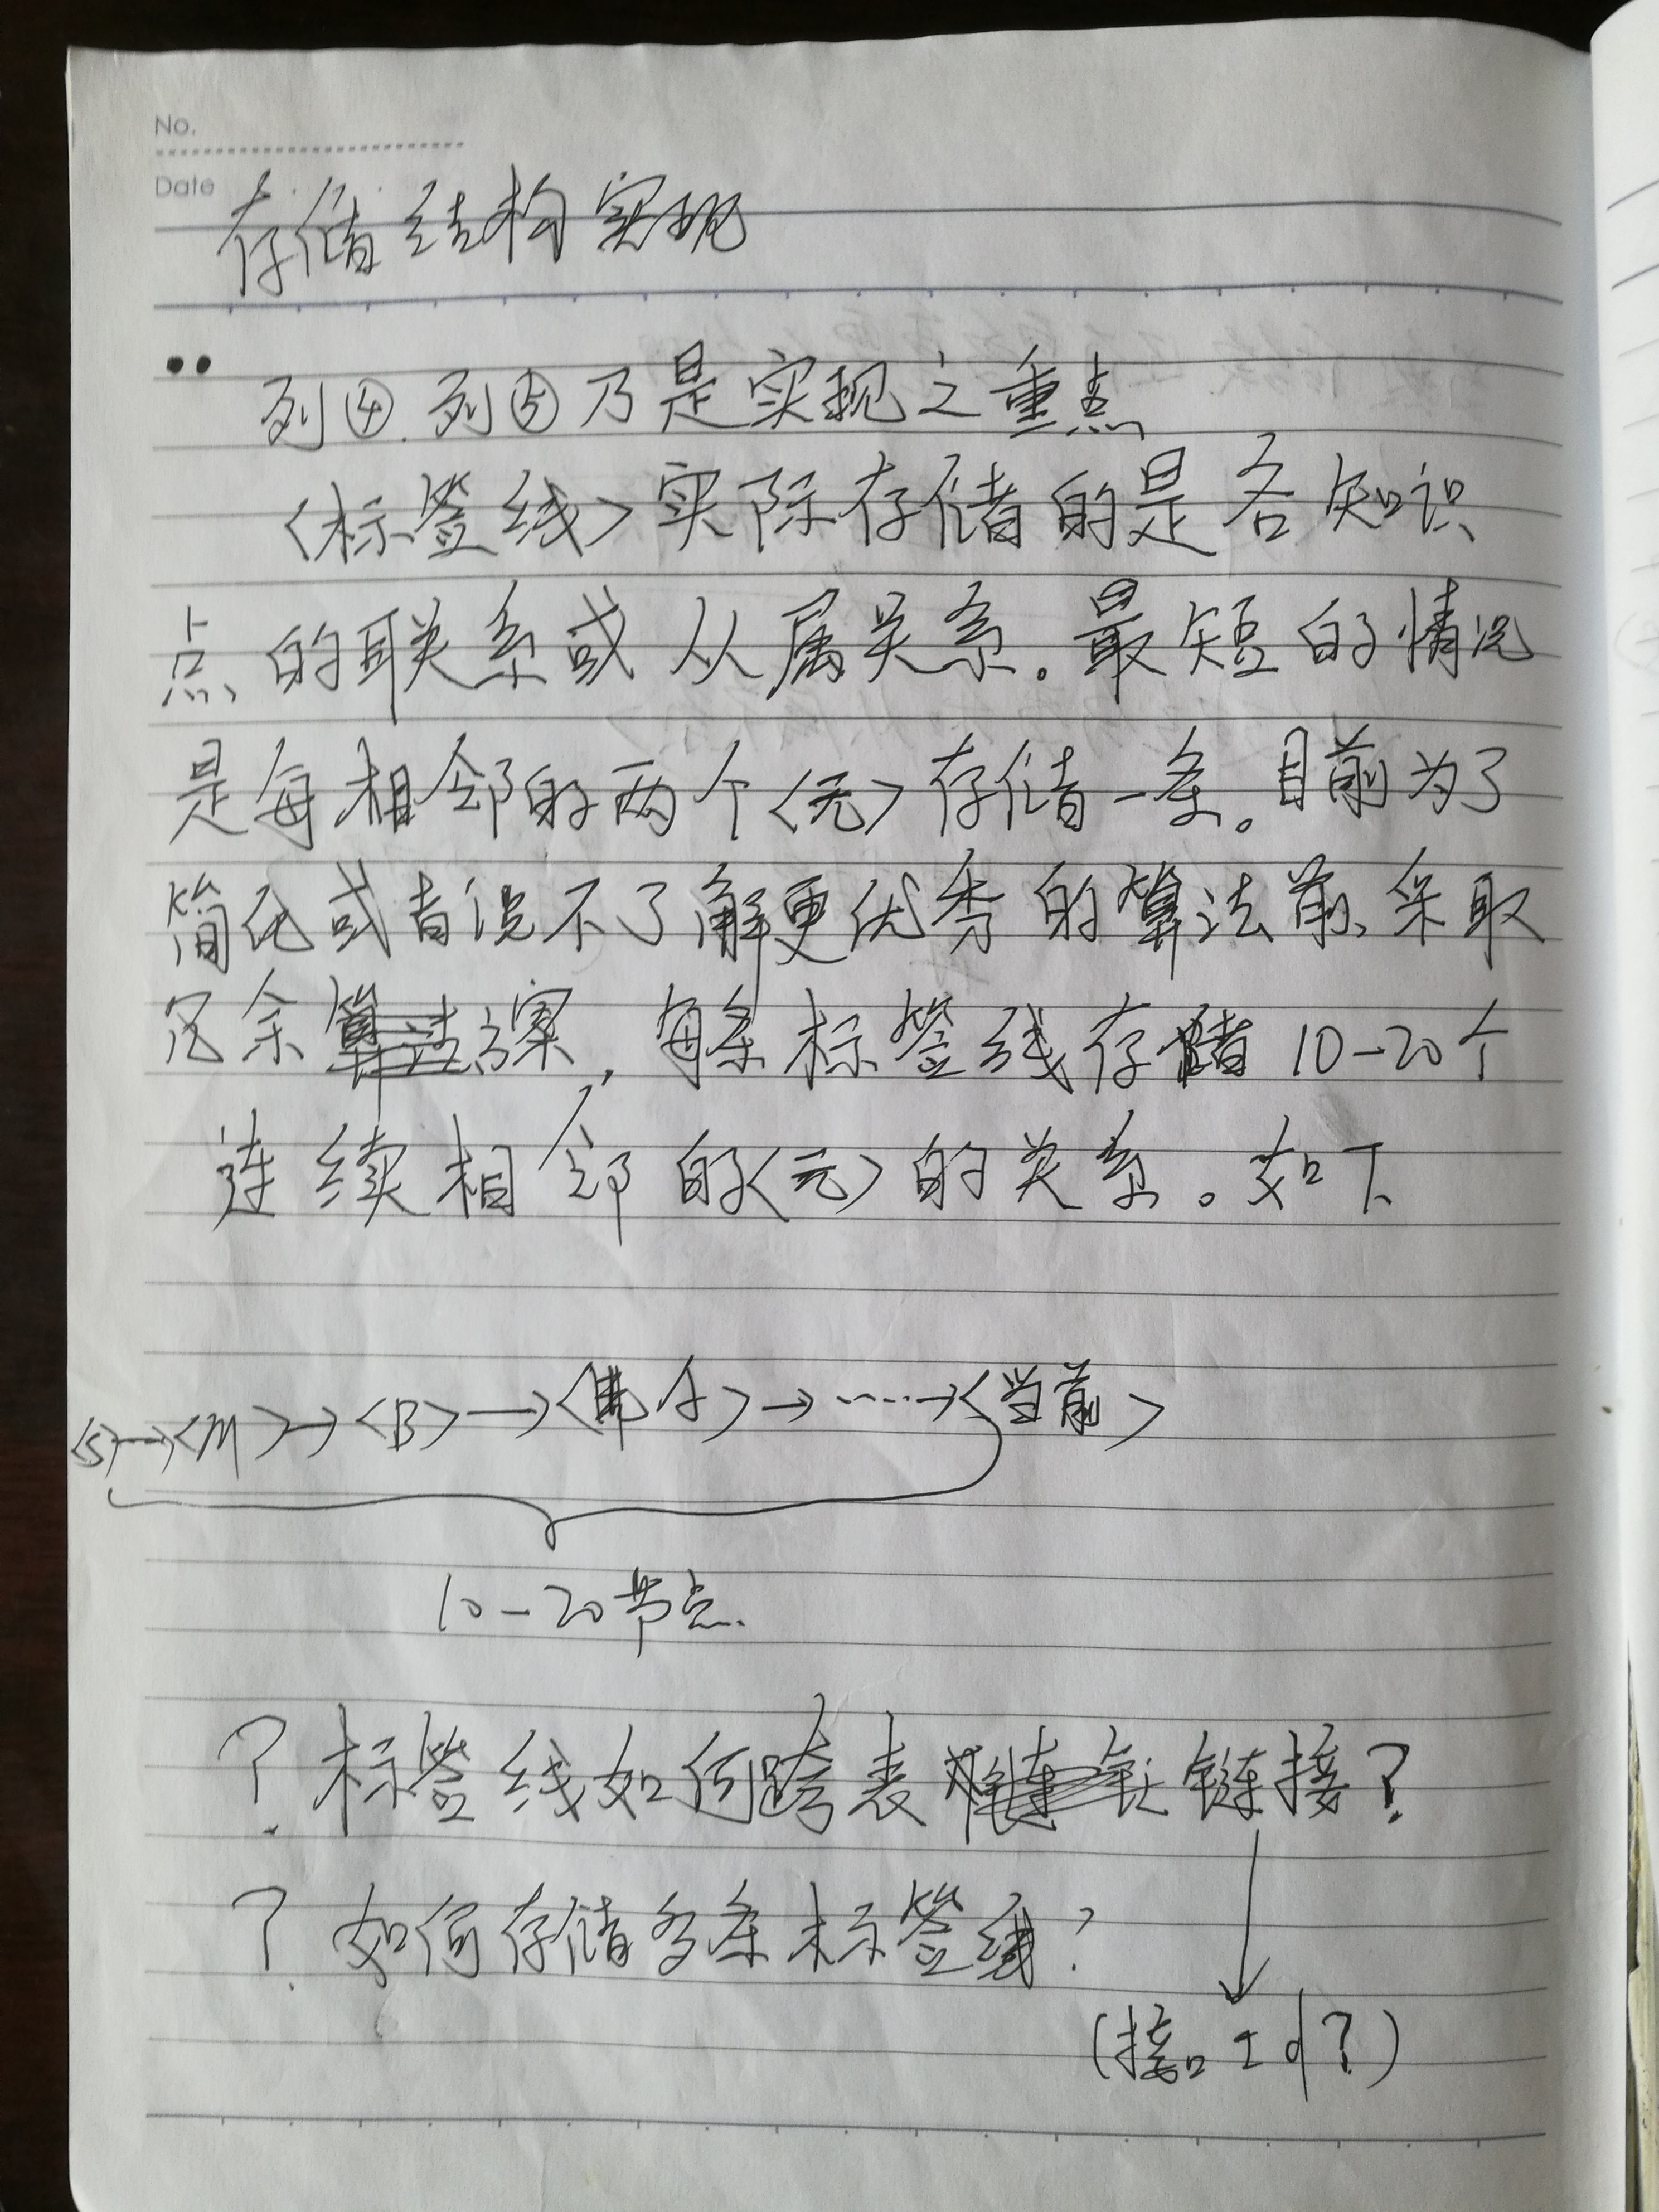 No.
Date
存储结构实现
列④.列⑤乃是实现之重点
<标签线>实际存储的是各知识
点的联系或从属关系。最短的情况
是每相邻的两个<元>存储一条。目前为了
简化或者说不了解更优秀的算法前、采取
冗余方案,每条标签线存储10-20个
连续相邻的<元>的关系。如下
<S>→<M>→<B>→<A>→……→<当前>
10-20节点.
?标签线如何跨表链接?
?如何存储多条标签线?
(接口Id?)